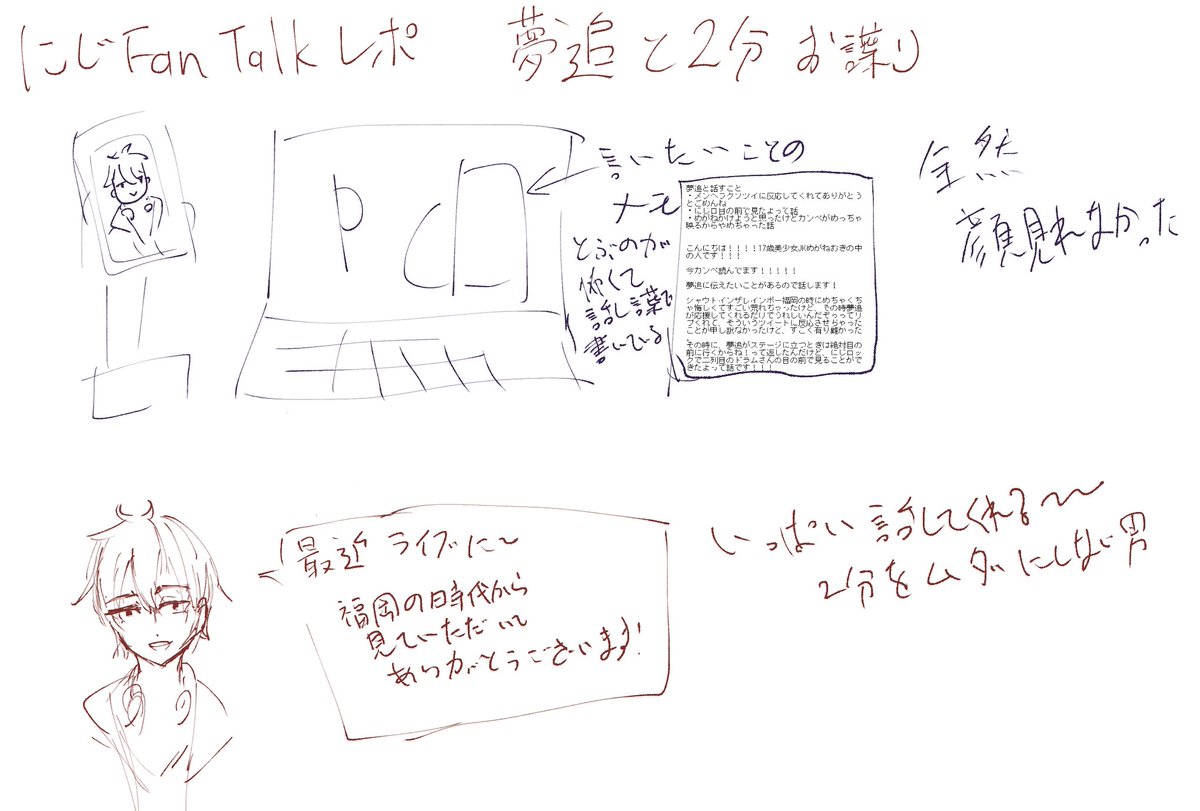 にじFan Talkレポ 夢追と2分お諜り
PC
言いたいことの
メモ
とぶのが
怖くて
話し言葉で
書いている
夢追と話すこと
・メンヘラクソツイに反応してくれてありがとう
とごめんね
・にじロ目の前で見たよって話
・めがねかけようと思ったけどカンペがめっちゃ
映るからやめちゃった話
こんにちは!!!!17歳美少女JKめがねおきの中
の人です!!!
今カンペ読んでます!!!!!
夢追に伝えたいことがあるので話します!
シャウトインザレインボー福岡の時にめちゃくち
ゃ悔しくてすごい荒れちゃったけど、その時夢追
が応援してくれるだけでうれしいんだぞぅってリ
プくれて、そういうツイートに反応させちゃった
ことが申し訳なかったけど、すごく有り難かった
。
その時に、夢追がステージに立つときは絶対目の
前に行くからね!って返したんだけど、にじロッ
クで二列目のドラムさんの目の前で見ることがで
きたよって話です!!!
全然
顔見れなかった
最近 ライブに〜
福岡の時代から
見ていただいて
ありがとうございます!
いっぱい話してくれる〜〜
2分をムダにしない男